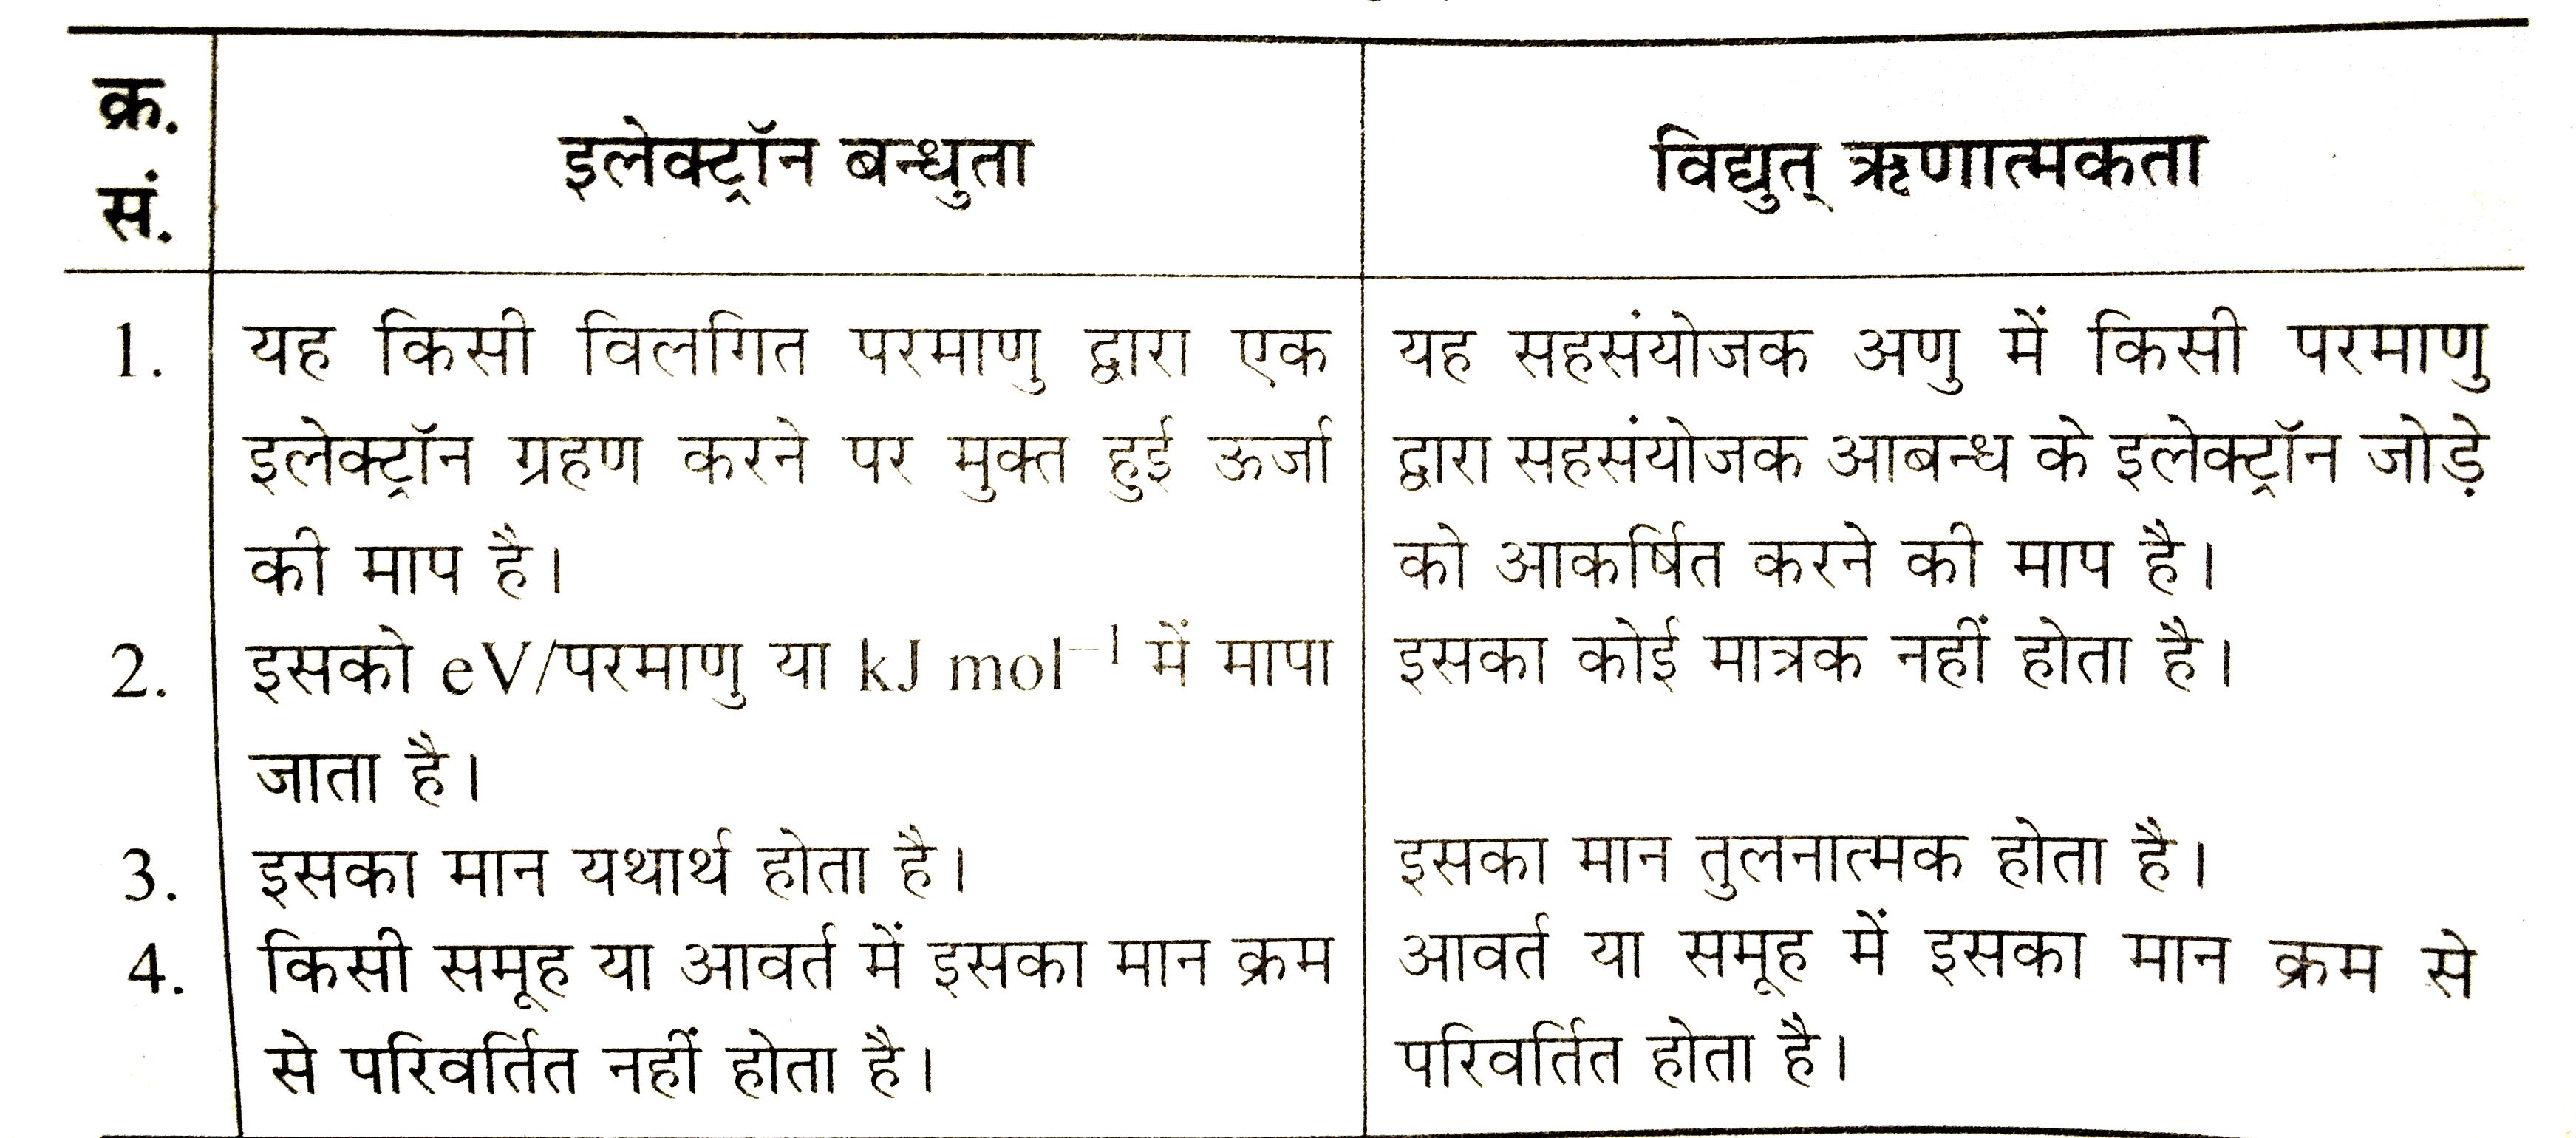 क्र.
सं.
इलेक्ट्रॉन बन्धुता
विद्युत् ऋणात्मकता
1.
यह किसी विलगित परमाणु द्वारा एक
इलेक्ट्रॉन ग्रहण करने पर मुक्त हुई ऊर्जा
की माप है।
यह सहसंयोजक अणु में किसी परमाणु
द्वारा सहसंयोजक आबन्ध के इलेक्ट्रॉन जोड़े
को आकर्षित करने की माप है।
2.
इसको eV/परमाणु या kJ mol⁻¹ में मापा
जाता है।
इसका कोई मात्रक नहीं होता है।
3.
इसका मान यथार्थ होता है।
इसका मान तुलनात्मक होता है।
4.
किसी समूह या आवर्त में इसका मान क्रम
से परिवर्तित नहीं होता है।
आवर्त या समूह में इसका मान क्रम से
परिवर्तित होता है।